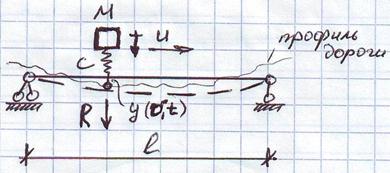 M
u
c
профиль
дороги
R
y(v,t)
l